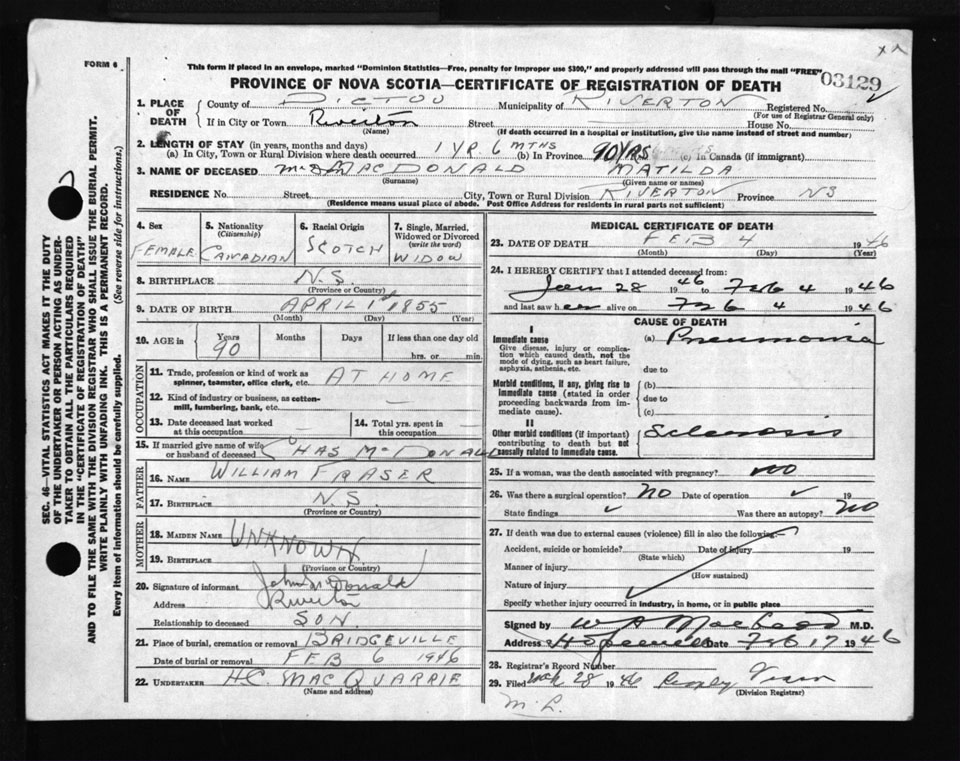 FORM 6
This form if placed in an envelope, marked "Dominion Statistics—Free, penalty for improper use $300," and properly addressed will pass through the mail "FREE"
03129
PROVINCE OF NOVA SCOTIA—CERTIFICATE OF REGISTRATION OF DEATH
1. PLACE OF DEATH County of PICTOU Municipality of RIVERTON Registered No.
(For use of Registrar General only)
If in City or Town Riverton Street House No.
(Name) (If death occurred in a hospital or institution, give the name instead of street and number)
2. LENGTH OF STAY (in years, months and days)
(a) In City, Town or Rural Division where death occurred 1 YR. 6 MTHS (b) In Province 90 YRS (c) In Canada (if immigrant)
3. NAME OF DECEASED MACDONALD MATILDA
(Surname) (Given name or names)
RESIDENCE No. Street City, Town or Rural Division RIVERTON Province NS
(Residence means usual place of abode. Post Office Address for residents in rural parts not sufficient)
4. Sex FEMALE
5. Nationality (Citizenship) CANADIAN
6. Racial Origin SCOTCH
7. Single, Married, Widowed or Divorced (write the word) WIDOW
8. BIRTHPLACE N.S.
(Province or Country)
9. DATE OF BIRTH APRIL 1st 1855
(Month) (Day) (Year)
10. AGE in Years 90 Months Days If less than one day old
hrs. or min.
OCCUPATION
11. Trade, profession or kind of work as spinner, teamster, office clerk, etc. AT HOME
12. Kind of industry or business, as cotton-mill, lumbering, bank, etc.
13. Date deceased last worked at this occupation
14. Total yrs. spent in this occupation
15. If married give name of wife or husband of deceased CHAS McDONALD
FATHER
16. NAME WILLIAM FRASER
17. BIRTHPLACE N.S.
(Province or Country)
MOTHER
18. MAIDEN NAME UNKNOWN
19. BIRTHPLACE
(Province or Country)
20. Signature of informant John McDonald
Address Riverton
Relationship to deceased SON.
21. Place of burial, cremation or removal BRIDGEVILLE
Date of burial or removal FEB 6 1946
22. UNDERTAKER H.C. MACQUARRIE
(Name and address)
MEDICAL CERTIFICATE OF DEATH
23. DATE OF DEATH FEB 4 1946
(Month) (Day) (Year)
24. I HEREBY CERTIFY that I attended deceased from:
Jan 28 1946 to Feb 4 1946
and last saw her alive on Feb 4 1946
CAUSE OF DEATH
I
Immediate cause (a) Pneumonia
Give disease, injury or complication which caused death, not the mode of dying, such as heart failure, asphyxia, asthenia, etc.
due to
Morbid conditions, if any, giving rise to immediate cause (stated in order proceeding backwards from immediate cause).
(b)
due to
(c)
II
Other morbid conditions (if important) contributing to death but not causally related to immediate cause. Sclerosis
25. If a woman, was the death associated with pregnancy? no
26. Was there a surgical operation? NO Date of operation ✓ 19
State findings ✓ Was there an autopsy? NO
27. If death was due to external causes (violence) fill in also the following:—
Accident, suicide or homicide? Date of injury 19
(State which)
Manner of injury
(How sustained)
Nature of injury
Specify whether injury occurred in industry, in home, or in public place
Signed by M.D.
Address Hopewell Date Feb 17 1946
28. Registrar's Record Number
29. Filed 28 1946
(Division Registrar)
SEC. 46—VITAL STATISTICS ACT MAKES IT THE DUTY
OF THE UNDERTAKER OR PERSON ACTING AS UNDER-
TAKER TO OBTAIN ALL THE PARTICULARS REQUIRED
IN THE "CERTIFICATE OF REGISTRATION OF DEATH"
AND TO FILE THE SAME WITH THE DIVISION REGISTRAR WHO SHALL ISSUE THE BURIAL PERMIT.
WRITE PLAINLY WITH UNFADING INK. THIS IS A PERMANENT RECORD.
Every item of information should be carefully supplied. (See reverse side for instructions.)